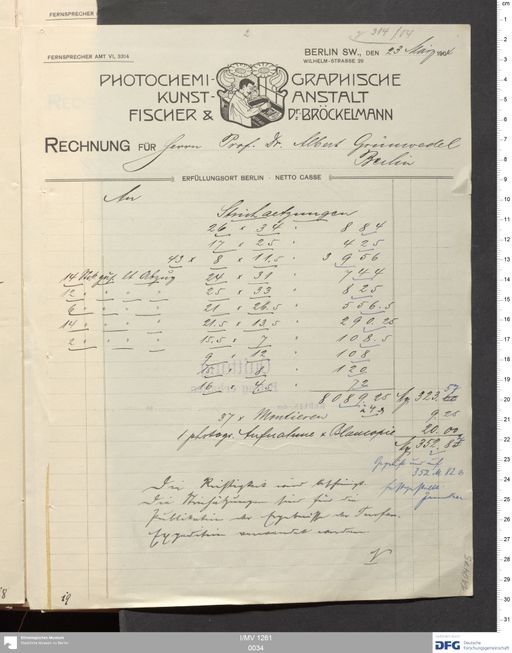 FERNSPRECHER
2
384/04
FERNSPRECHER AMT VI, 3304
BERLIN SW., DEN 23 März 1904
WILHELM-STRASSE 29
PHOTOCHEMI-GRAPHISCHE
KUNST-ANSTALT
FISCHER & Dr. BRÖCKELMANN
RECHNUNG FÜR Herrn Prof. Dr. Albert Grünwedel
Berlin
ERFÜLLUNGSORT BERLIN - NETTO CASSE
An
Strichaetzungen
26 x 34 = 884
17 x 25 = 425
43 x 8 x 11,5 = 3956
24 x 31 = 744
25 x 33 = 825
21 x 26,5 = 556,5
21,5 x 13,5 = 290,25
15,5 x 7 = 108,5
9 x 12 = 108
15 x 8 = 120
16 x 4,5 = 72
8089,25 323,57
37 x Montieren 9,25
1 photogr. Aufnahme x Blaucopie 20.00
352,82
Die Richtigkeit wird bescheinigt.
Die Strichätzungen sind für die
Publikation der Ergebnisse der Turfan-
Expedition verwendet worden.
Ethnologisches Museum
Staatliche Museen zu Berlin
I/MV 1261
0034
DFG Deutsche
Forschungsgemeinschaft